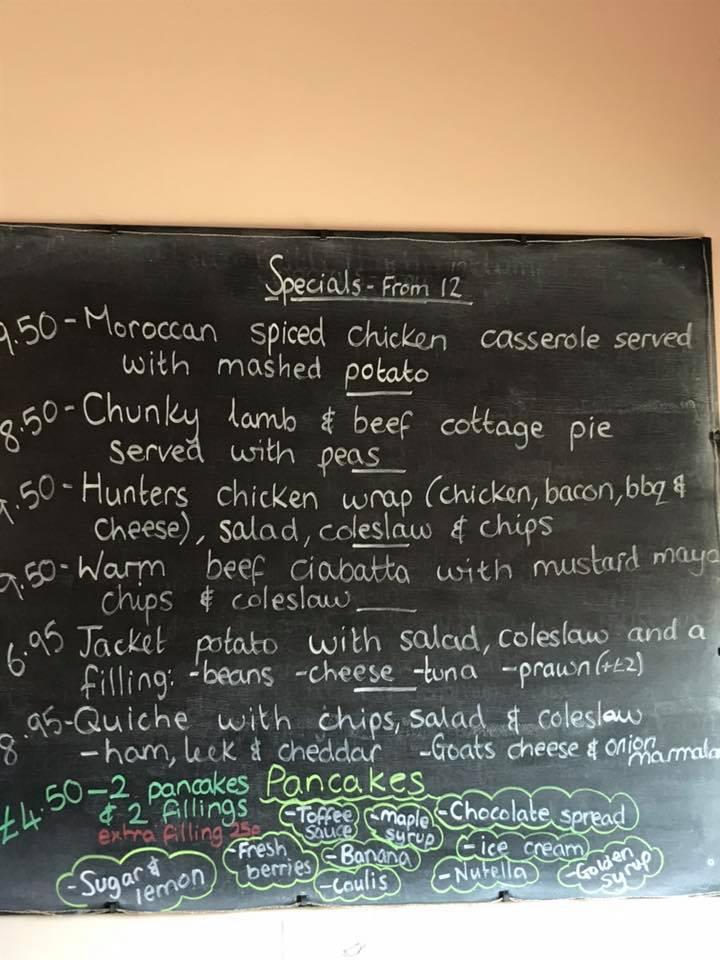 Specials - From 12
9.50 - Moroccan spiced chicken casserole served
with mashed potato
8.50 - Chunky lamb & beef cottage pie
served with peas
9.50 - Hunters chicken wrap (chicken, bacon, bbq &
cheese), salad, coleslaw & chips
9.50 - Warm beef ciabatta with mustard mayo
chips & coleslaw
6.95 Jacket potato with salad, coleslaw and a
filling: -beans -cheese -tuna -prawn (+£2)
8.95 - Quiche with chips, salad & coleslaw
-ham, leek & cheddar -Goats cheese & onion
marmala
Pancakes
£4.50 - 2 pancakes
& 2 fillings
extra filling 25p
-Toffee
sauce
-maple
syrup
-Chocolate spread
-Fresh
berries
-Banana
-ice cream
-Sugar &
lemon
-Coulis
-Nutella
-Golden
syrup